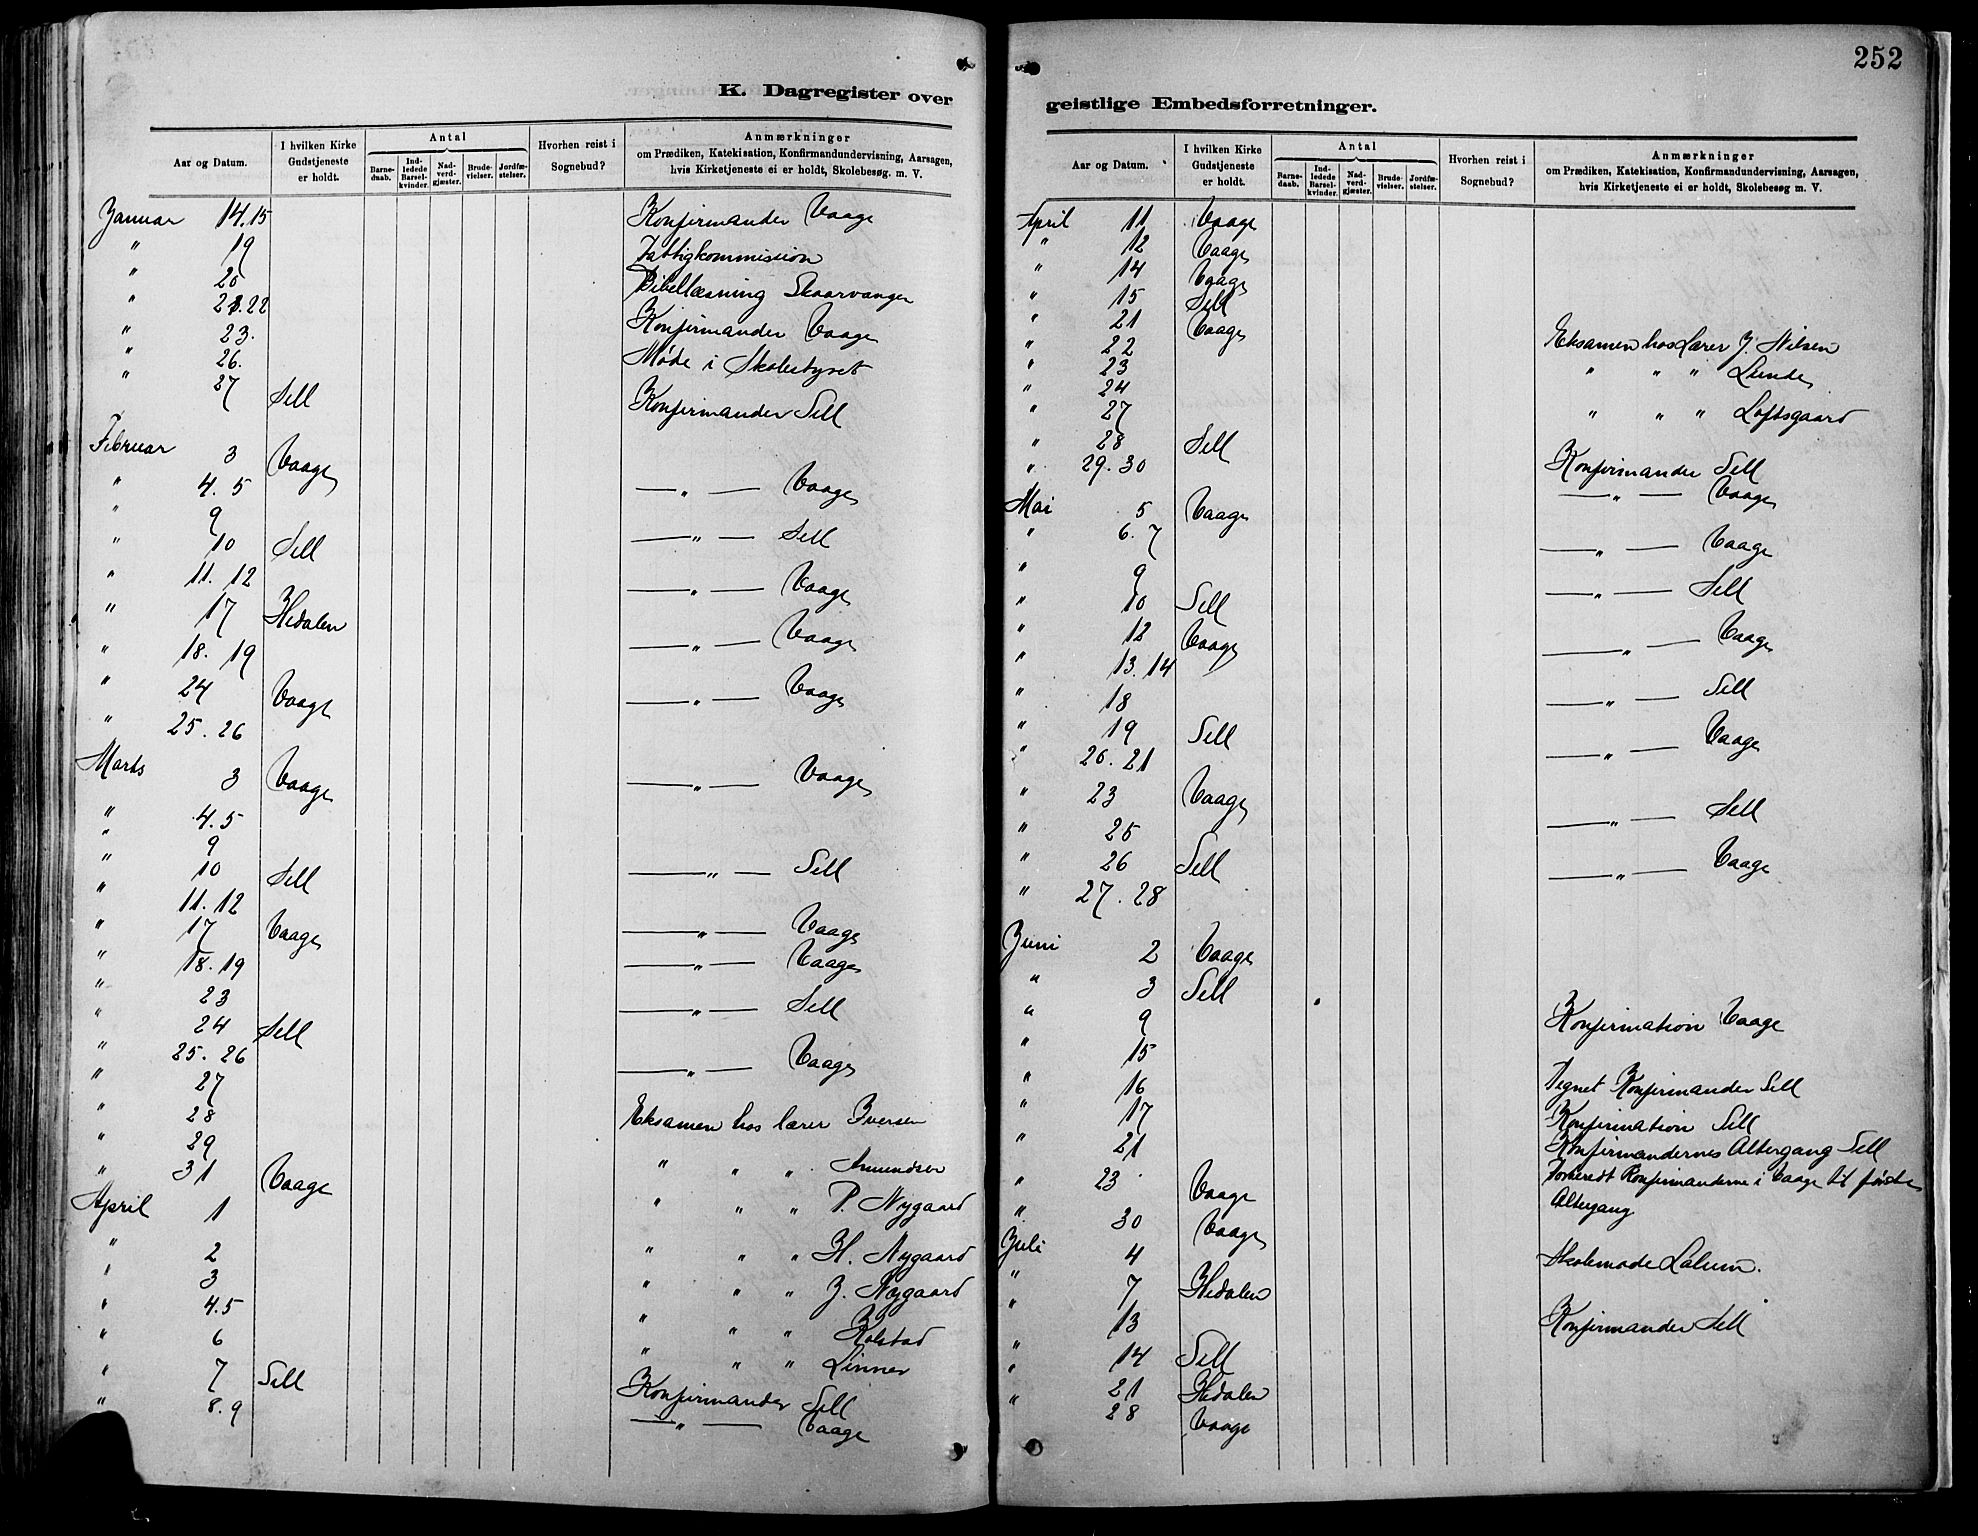 252
K. Dagregister over
Aar og Datum. | I hvilken Kirke Gudstjeneste er holdt. | Antal | Barnedaab. | Indledede Barselkvinder. | Nadverdgjæster. | Brudevielser. | Jordfæstelser. | Hvorhen reist i Sognebud? | Anmærkninger om Prædiken, Katekisation, Konfirmandundervisning, Aarsagen, hvis Kirketjeneste ei er holdt, Skolebesøg. m. V.
Januar 14.15 Konfirmander Vaage
" 19 Fattigkommission
" 20 Bibellæsning Skaarvangen
" 21.22 Konfirmander Vaage
" 23. Møde i Skolestyret
" 26. Konfirmander Sell
" 27 Sell
Februar 3 Vaage
" 4. 5 —"— Vaage
" 9 —"— Sell
" 10 Sell
" 11. 12 —"— Vaage
" 17 Hedalen
" 18. 19 —"— Vaage
" 24 Vaage
" 25. 26 —"— Vaage
Marts 3 Vaage
" 4.5 —"— Vaage
" 9 —"— Sell
" 10 Sell
" 11. 12 —"— Vaage
" 17 Vaage
" 18. 19 —"— Vaage
" 23 —"— Sell
" 24 Sell
" 25. 26 —"— Vaage
" 27 Eksamen hos lærer Iversen
" 28 " " " Amundsen
" 29 " " " P. Nygaard
" 31 Vaage
April 1 " " " H. Nygaard
" 2 " " " J. Nygaard
" 3 " " " Kolstad
" 4.5 " " " Linner
" 6 Konfirmander Sell
" 7 Sell
" 8.9 —"— Vaage
geistlige Embedsforretninger.
Aar og Datum. | I hvilken Kirke Gudstjeneste er holdt. | Antal | Barnedaab. | Indledede Barselkvinder. | Nadverdgjæster. | Brudevielser. | Jordfæstelser. | Hvorhen reist i Sognebud? | Anmærkninger om Prædiken, Katekisation, Konfirmandundervisning, Aarsagen, hvis Kirketjeneste ei er holdt, Skolebesøg m. V.
April 11 Vaage
" 12 Vaage
" 14 Vaage
" 15 Sell
" 21 Vaage
" 22 Eksamen hos Lærer J. Nilsen
" 23 " " " Lunde
" 24 " " " Loftsgaard
" 27 Konfirmander Sell
" 28 Sell
" 29. 30 —"— Vaage
Mai 5 Vaage
" 6. 7 —"— Vaage
" 9 —"— Sell
" 10 Sell
" 12 Vaage
" 13. 14 —"— Vaage
" 18 —"— Sell
" 19 Sell
" 20. 21 —"— Vaage
" 23 Vaage
" 25 —"— Sell
" 26 Sell
" 27. 28 —"— Vaage
Juni 2 Vaage
" 3 Sell
" 9 Konfirmation Vaage
" 15 Tegnet Konfirmander Sell
" 16 Konfirmation Sell
" 17 Konfirmandernes Altergang Sell
" 21 Forberedt Konfirmanderne i Vaage til første Altergang
" 23 Vaage
" 30 Vaage
Juli 4 Skolemøde Lalum.
" 7 Hedalen
" 13 Konfirmander Sell
" 14 Sell
" 21 Hedalen
" 28 Vaage